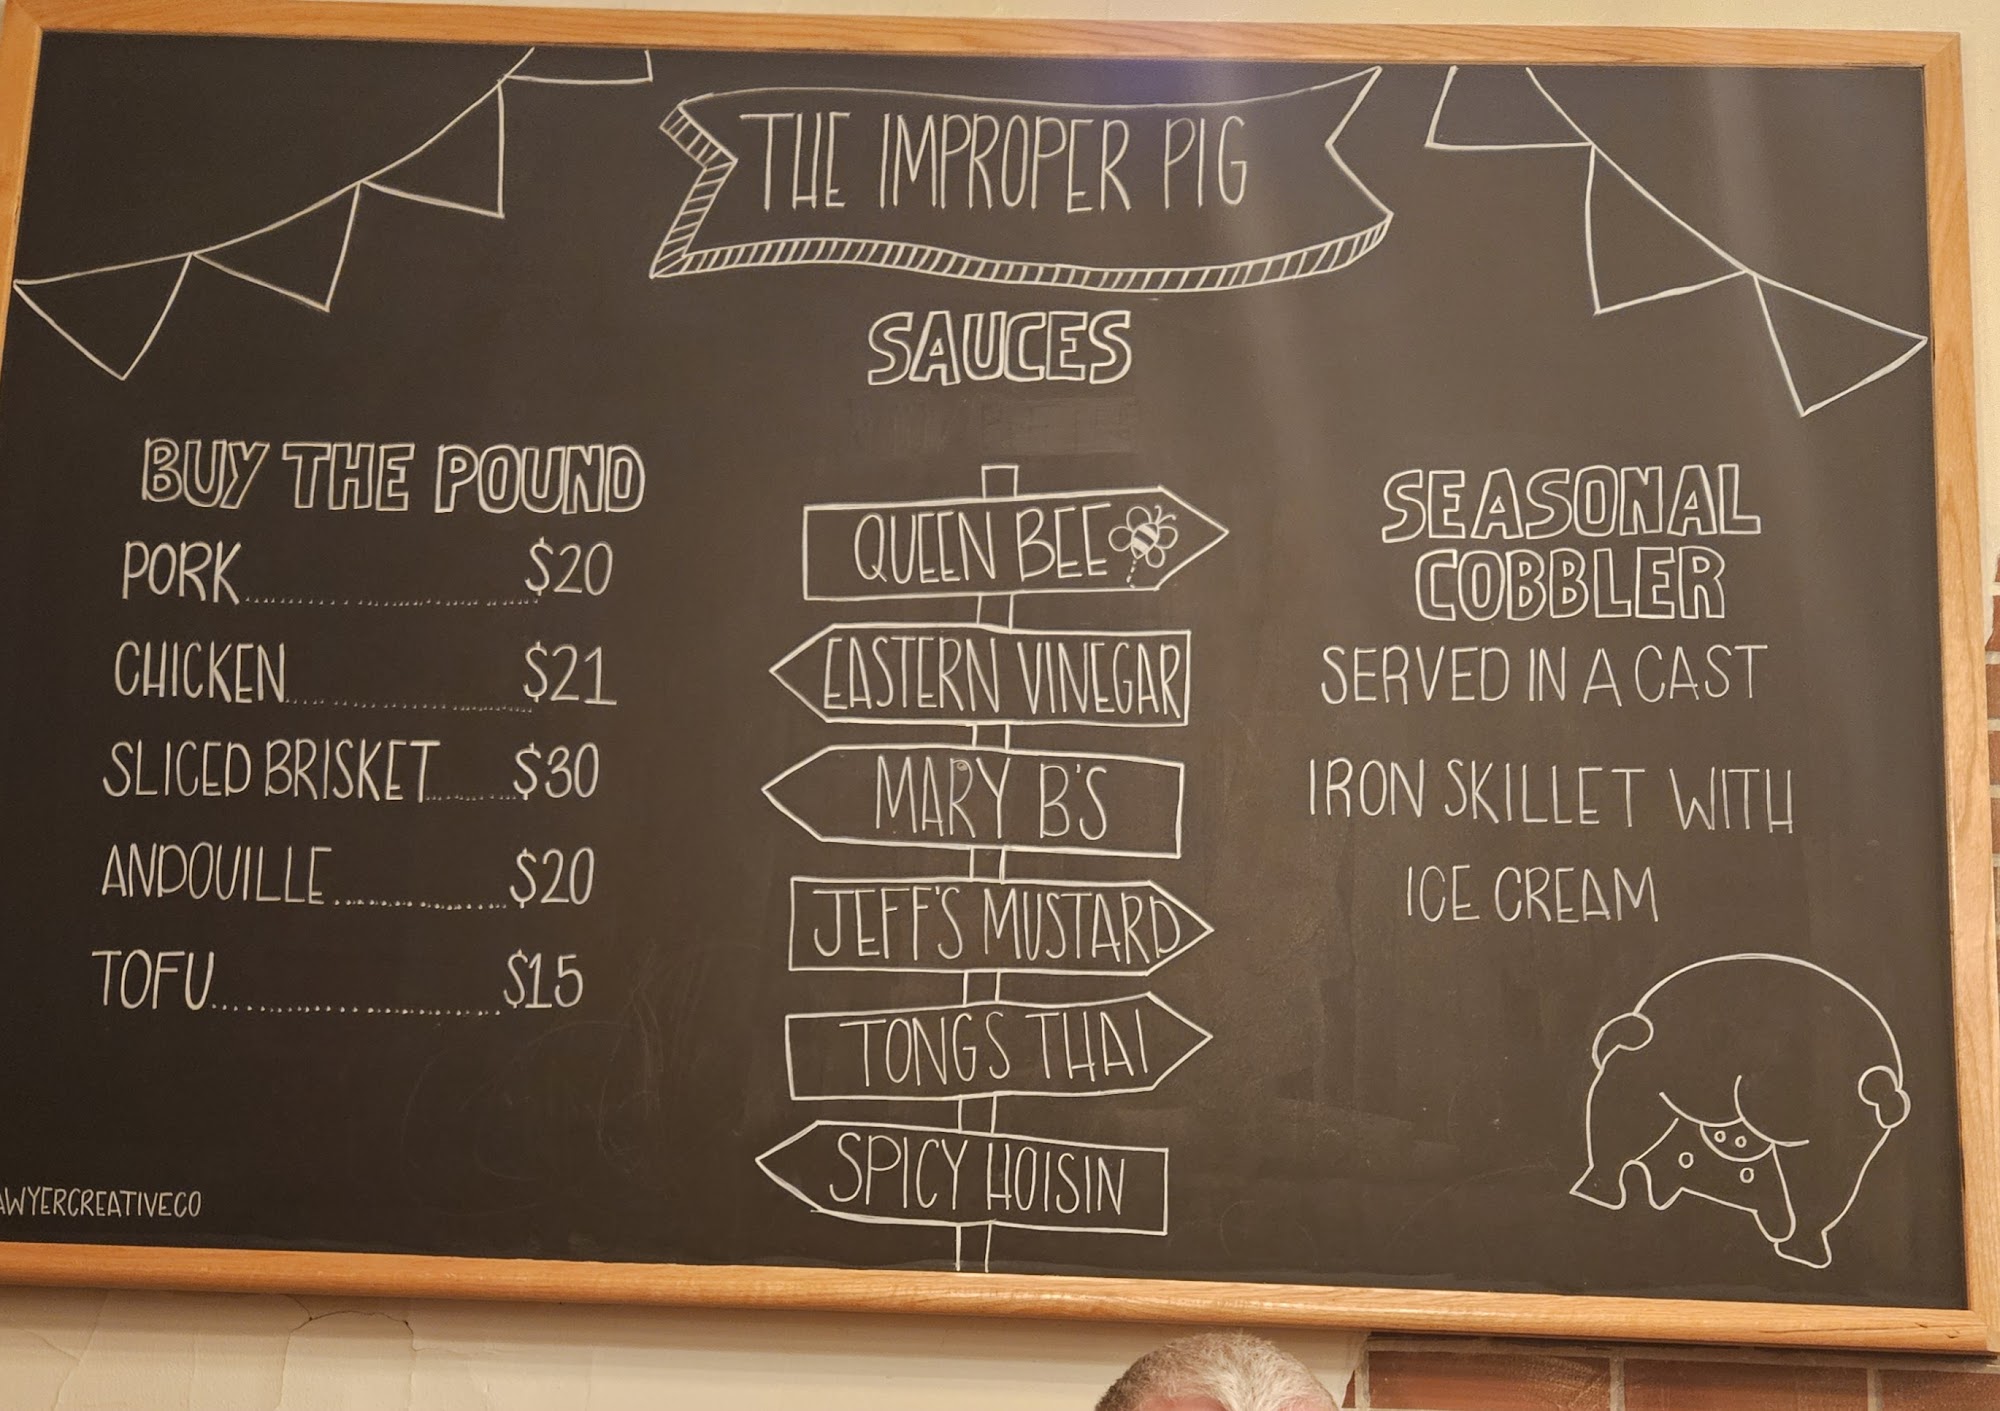 THE IMPROPER PIG
SAUCES
BUY THE POUND
PORK......$20
CHICKEN......$21
SLICED BRISKET......$30
ANDOUILLE......$20
TOFU......$15
QUEEN BEE
EASTERN VINEGAR
MARY B'S
JEFF'S MUSTARD
TONGS THAI
SPICY HOISIN
SEASONAL
COBBLER
SERVED IN A CAST
IRON SKILLET WITH
ICE CREAM
AWYERCREATIVECO